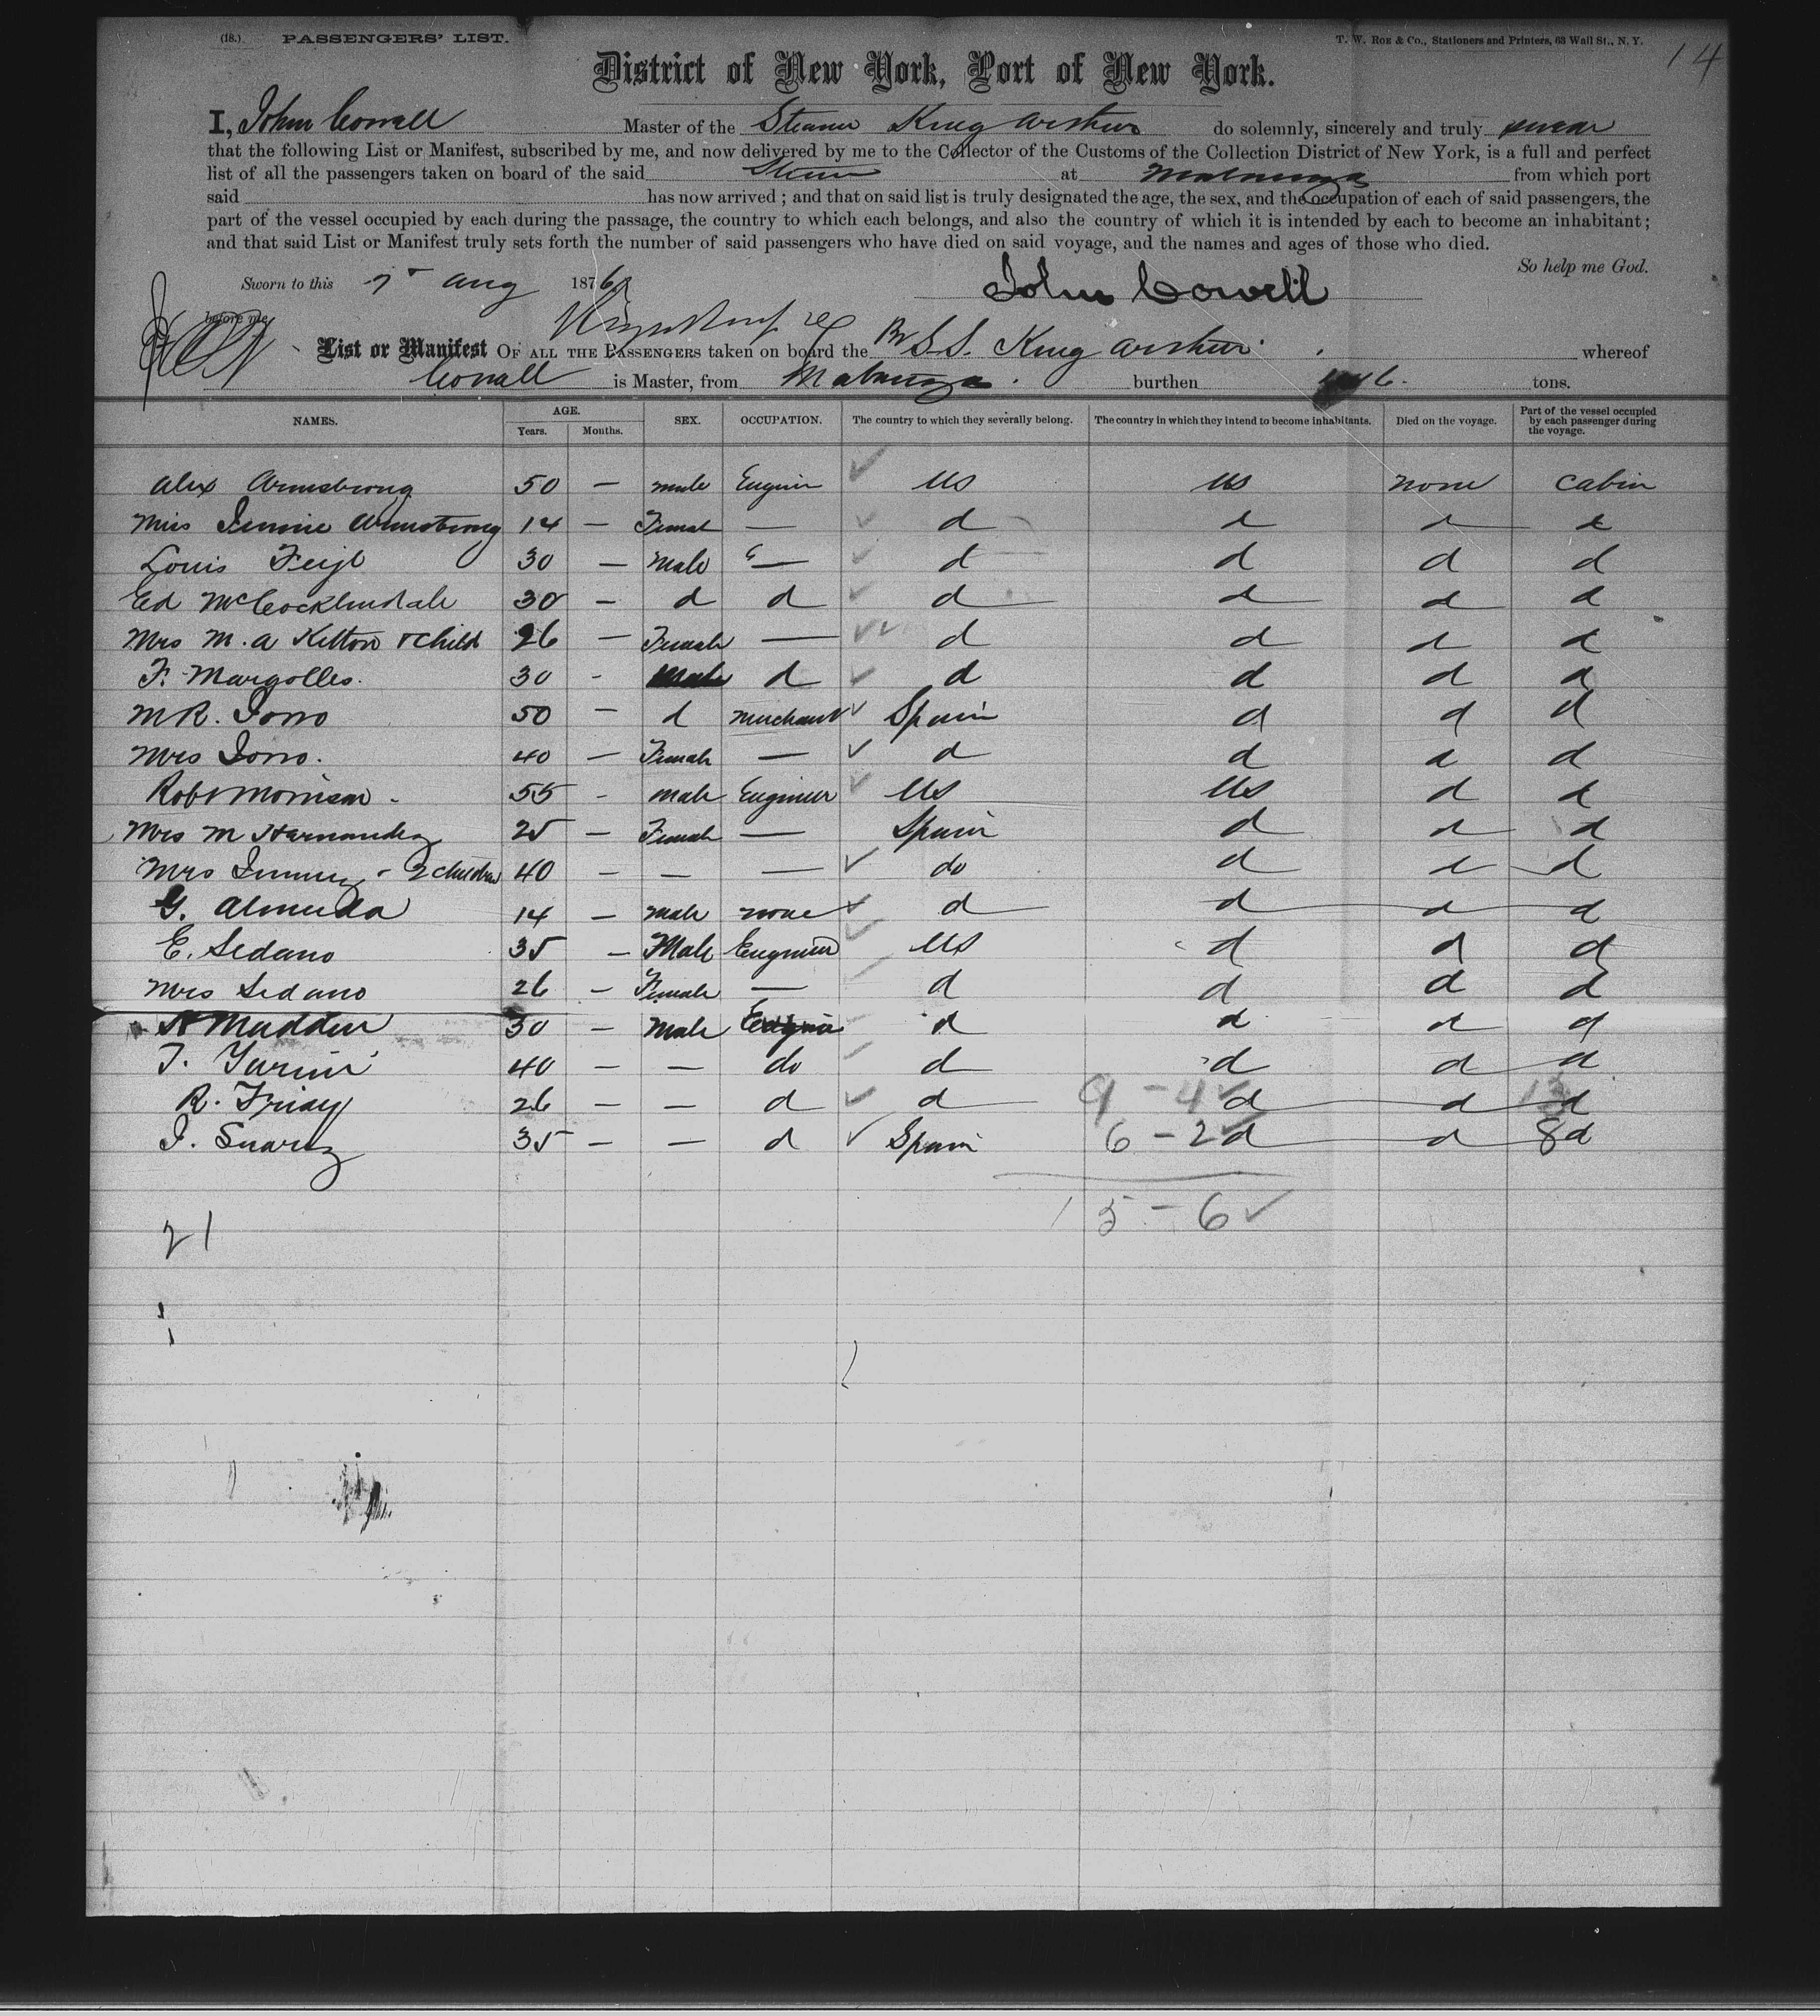 (18.) PASSENGERS' LIST. T. W. Roe & Co., Stationers and Printers, 63 Wall St., N. Y. 14
District of New York, Port of New York.
I, John Cowell Master of the Steamer King Arthur do solemnly, sincerely and truly swear
that the following List or Manifest, subscribed by me, and now delivered by me to the Collector of the Customs of the Collection District of New York, is a full and perfect
list of all the passengers taken on board of the said Steamer at Matanzas from which port
said has now arrived; and that on said list is truly designated the age, the sex, and the occupation of each of said passengers, the
part of the vessel occupied by each during the passage, the country to which each belongs, and also the country of which it is intended by each to become an inhabitant;
and that said List or Manifest truly sets forth the number of said passengers who have died on said voyage, and the names and ages of those who died.
So help me God.
Sworn to this 7 Aug 1876 John Cowell
before me
List or Manifest OF ALL THE PASSENGERS taken on board the Br S.S. King Arthur whereof
Cowell is Master, from Matanzas. burthen tons.
NAMES. AGE. Years. Months. SEX. OCCUPATION. The country to which they severally belong. The country in which they intend to become inhabitants. Died on the voyage. Part of the vessel occupied by each passenger during the voyage.
Alex Armstrong 50 — male Engineer US US none Cabin
Miss Jennie Armstrong 14 — Female — d d d d
Louis Feigl 30 — Male — d d d d
Ed 30 — d d d d d d
Mrs M. A Kelton & Child 26 — Female — d d d d
F. Margolles. 30 - Male d d d d d
M R. 50 — d Merchant Spain d d d
Mrs 40 — Female — d d d d
Robt Morrison - 55 - male Engineer US US d d
Mrs M Hernandez 25 — Female — Spain d d d
Mrs - 2 children 40 — — — do d d d
G. Almeida 14 — male none d d d d
E. Sedano 35 — Male Engineer US d d d
Mrs Sedano 26 — Female — d d d d
Madden 30 — Male d d d d
40 — — do d d d d
R. 26 — — d d 9 - 4 d d 13 d
J. Suarez 35 — — d Spain 6 - 2 d d 8 d
21 15 - 6